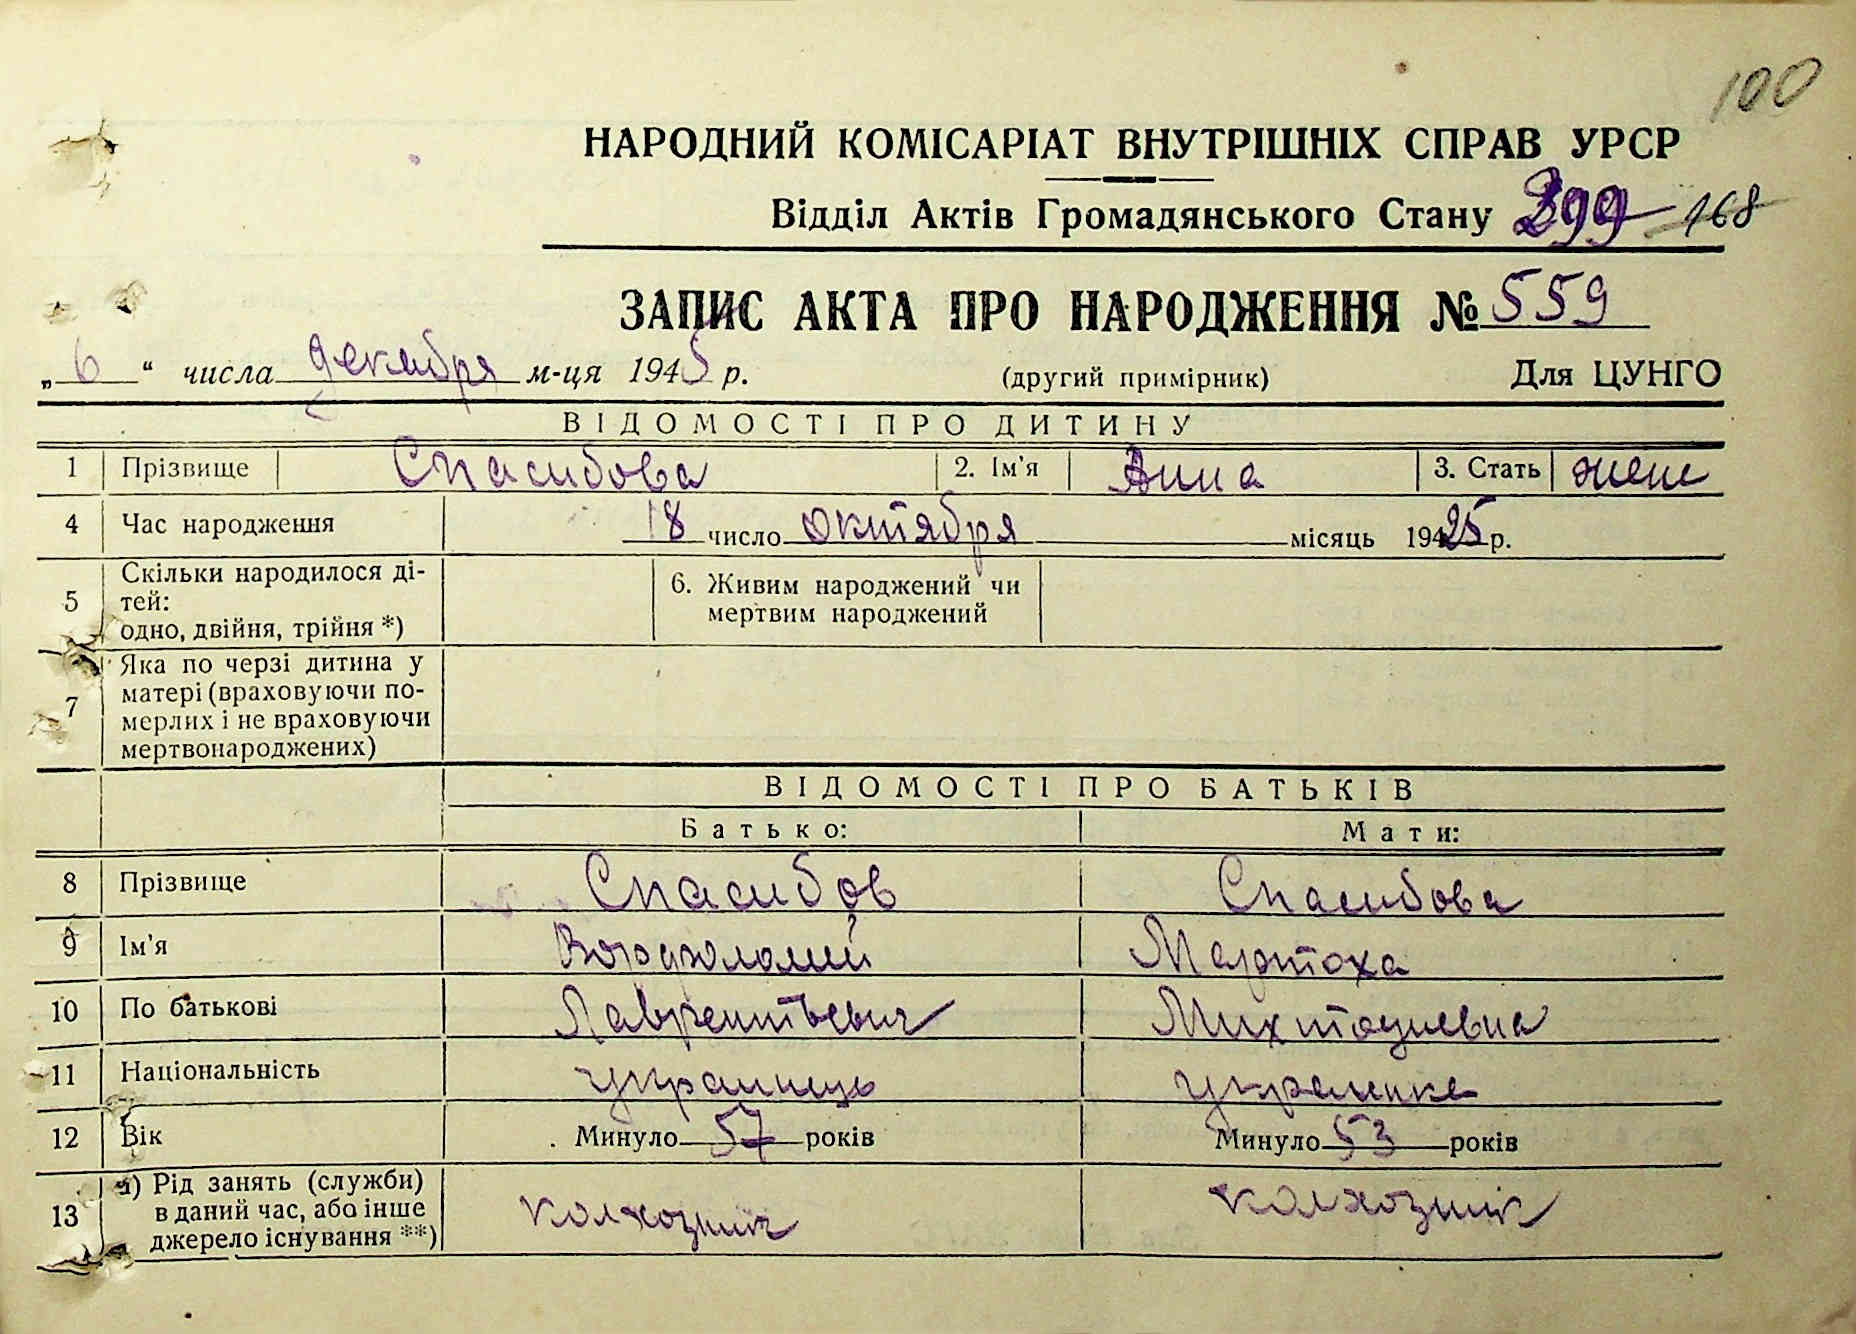 100
НАРОДНИЙ КОМІСАРІАТ ВНУТРІШНІХ СПРАВ УРСР
Відділ Актів Громадянського Стану 299 168
ЗАПИС АКТА ПРО НАРОДЖЕННЯ № 559
„ 6 “ числа декября м-ця 1945 р. (другий примірник) Для ЦУНГО
ВІДОМОСТІ ПРО ДИТИНУ
1 Прізвище Спасибова 2. Ім'я Анна 3. Стать жен
4 Час народження 18 число октября місяць 1925 р.
5 Скільки народилося ді-
тей:
одно, двійня, трійня *)
6. Живим народжений чи
мертвим народжений
7 Яка по черзі дитина у
матері (враховуючи по-
мерлих і не враховуючи
мертвонароджених)
ВІДОМОСТІ ПРО БАТЬКІВ
Батько: Мати:
8 Прізвище Спасибов Спасибова
9 Ім'я Варфоломей Мартоха
10 По батькові Лаврентьевич
11 Національність украинець украинка
12 Вік Минуло 57 років Минуло 53 років
13 а) Рід занять (служби)
в даний час, або інше
джерело існування **)
колхозник колхозник